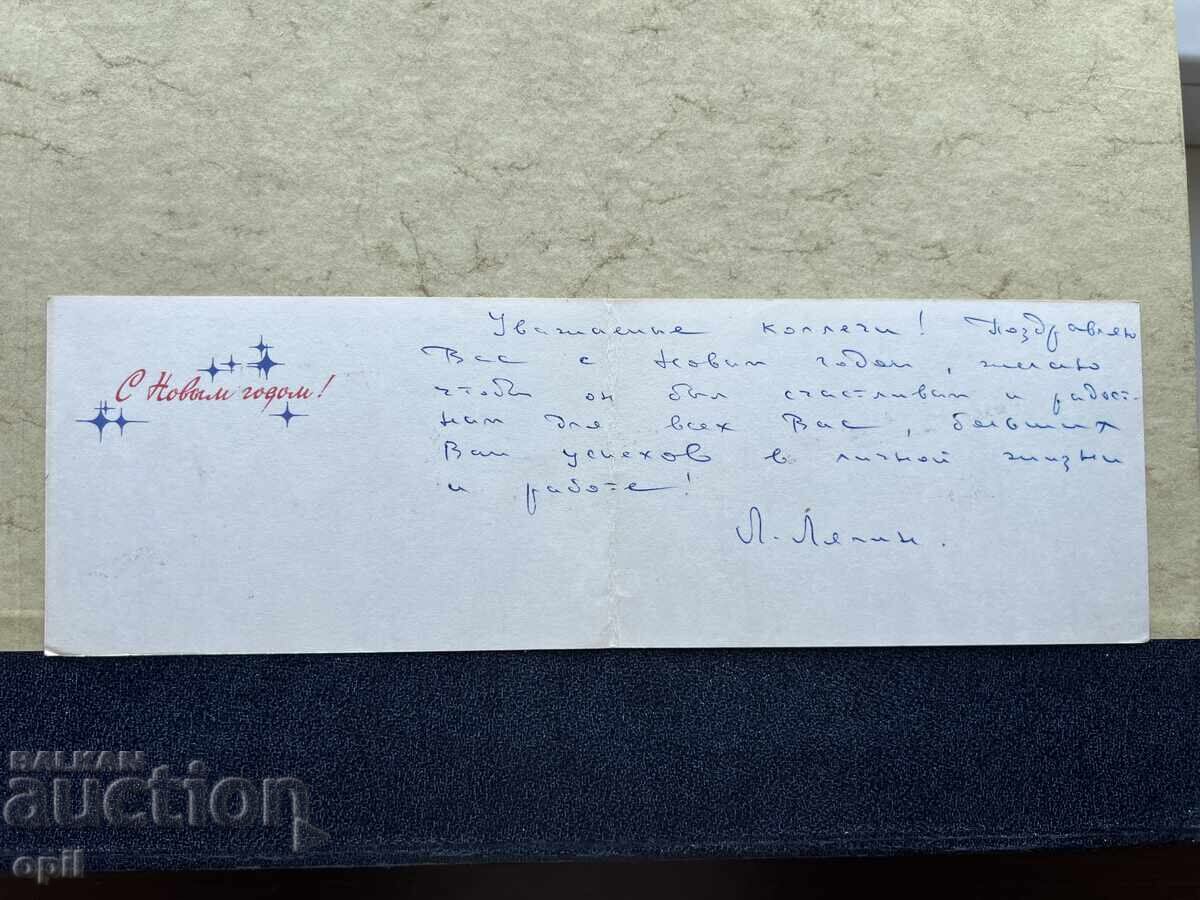 С Новым годом!
Уважаемые коллеги! Поздравляю
Вас с Новым годом, желаю
чтобы он был счастливым и радост-
ным для всех Вас, больших
Вам успехов в личной жизни
и работе!
Л. Ляпин.
BALKAN
auction
opil